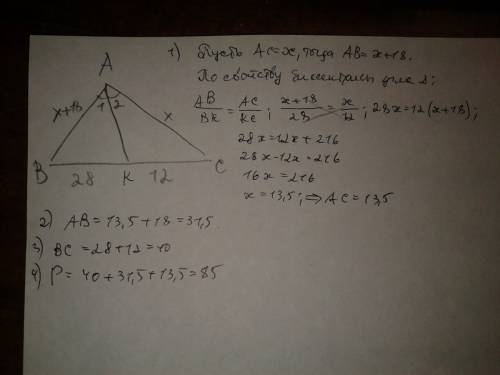 1) Пусть AC=x, тогда AB=x+18.
По свойству биссектрисы угла
AB/BK = AC/KC ; x+18/28 = x/12 ; 28x=12(x+18);
28x=12x+216
28x-12x=216
16x=216
x=13,5; ⇒ AC=13,5
A
x+18 1 2 x
B 28 K 12 C
2) AB=13,5+18=31,5.
3) BC=28+12=40
4) P=40+31,5+13,5=85